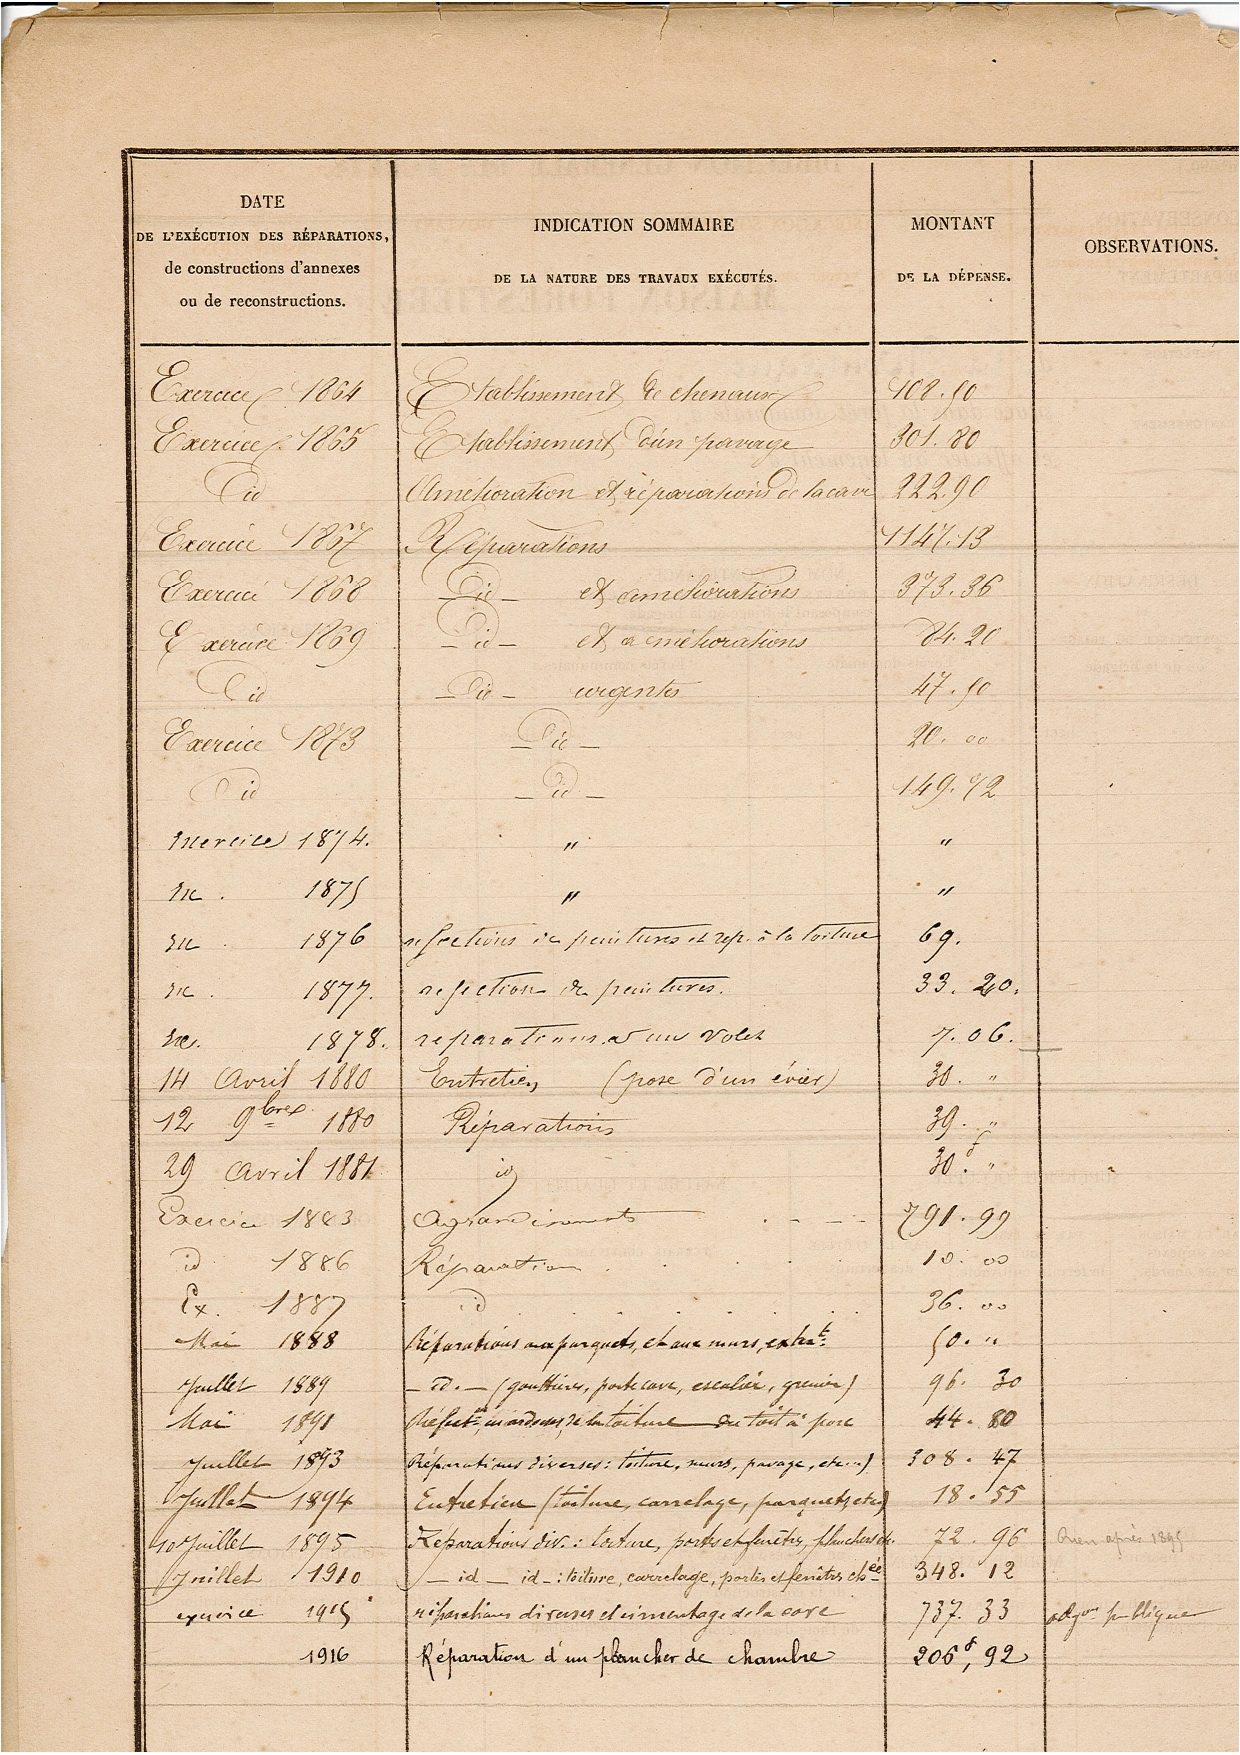 DATE
DE L'EXÉCUTION DES RÉPARATIONS,
de constructions d'annexes
ou de reconstructions.
INDICATION SOMMAIRE
DE LA NATURE DES TRAVAUX EXÉCUTÉS.
MONTANT
DE LA DÉPENSE.
OBSERVATIONS.
Exercice 1864 Etablissement de chenaux 108.90
Exercice 1865 Etablissement d'un pavage 301.80
id Amélioration et réparations de la cave 222.90
Exercice 1867 Réparations 1147.13
Exercice 1868 – id – et améliorations 373.36
Exercice 1869 – id – et améliorations 84.20
id – id – urgentes 47.90
Exercice 1873 – id – 20.00
id – id – 149.92
Exercice 1874. " "
Ex. 1875 " "
Ex 1876 refections de peintures et rep. à la toiture 69.
Ex. 1877. refection de peintures. 33.20.
Ex. 1878. reparations à un volet 7.06.
14 Avril 1880 Entretien (pose d'un évier) 30. "
12 9bres 1880 Réparations 39. "
29 Avril 1881 id 30f. "
Exercice 1883 Agrandissements 791.99
id 1886 Réparation 10.00
Ex. 1887 id 36.00
Mai 1888 Réparations aux parquets, et aux murs, 50. "
Juillet 1889 – id. – (gouttières, porte cave, escalier, grenier) 96.30
Mai 1891 de la toiture du toit à porc 44.80
Juillet 1893 Réparations diverses: toiture, murs, pavage, etc...) 308.47
Juillet 1894 Entretien (toiture, carrelage, parquets, etc) 18.55
10 Juillet 1895 Réparations div.: toiture, portes et fenêtres, planchers etc. 72.96 Rien après 1895
Juillet 1910 – id – id –: toiture, carrelage, portes et fenêtres 348.12
exercice 1915 réparations diverses et cimentage de la cave 737.33 adjon publique
1916 Réparation d'un plancher de chambre 206f,92